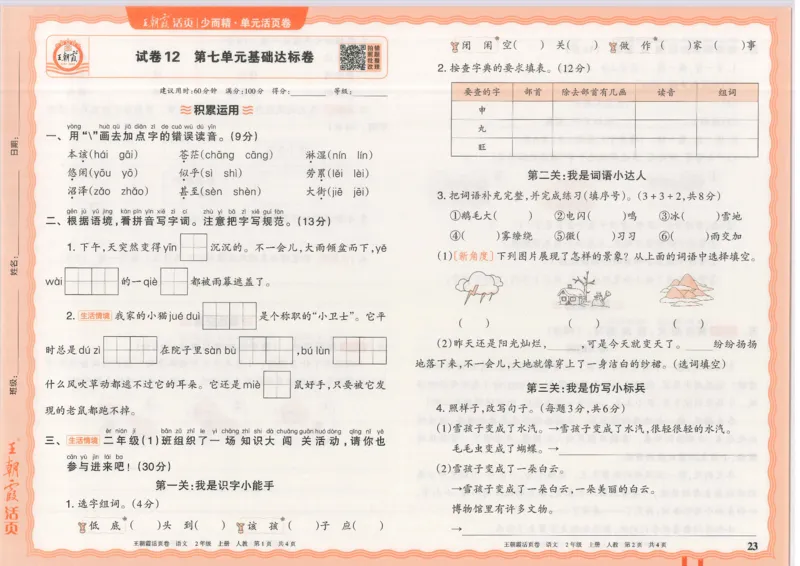 王朝霞活页|少而精·单元活页卷
王朝霞
试卷12 第七单元基础达标卷
建议用时:60分钟 满分:100分 得分:________ 等级:________
积累运用
yòng huà qù jiā diǎn zì de cuò wù dú yīn
一、用“\”画去加点字的错误读音。(9分)
本该(hái gāi) 苍茫(chāng cāng) 淋湿(nín lín)
悠闲(yōu yō) 似乎(sì shì) 劳累(lěi lèi)
沼泽(zǎo zhǎo) 甚至(sèn shèn) 大街(jiē jēi)
gēn jù yǔ jìng kàn pīn yīn xiě zì cí zhù yì bǎ zì xiě guī fàn
二、根据语境,看拼音写字词。注意把字写规范。(13分)
1. 下午,天突然变得yīn 沉沉的。不一会儿,大雨倾盆而下,yě
wài 的一qiè 都被雨幕遮盖了。
2. 生活情境 我家的小猫jué duì 是个称职的“小卫士”。它平
时总是dú zì 在院子里sàn bù ,bú lùn
什么风吹草动都逃不过它的耳朵。它还是miè 鼠好手,只要被它发
现的老鼠都跑不掉。
èr nián jí bān zǔ zhī le yì chǎng zhī shi dà chuǎng guān huó dòng qǐng nǐ yě
三、生活情境 二年级(1)班组织了一场知识大闯关活动,请你也
cān yù jìn lái ba
参与进来吧!(30分)
第一关:我是识字小能手
1. 选字组词。(4分)
低 底 ( )头 到( ) 该 孩 ( )子 应( )
王朝霞活页卷 语文 2年级 上册 人教 第1页 共4页
闭 闲 空( ) 关( ) 做 作 ( )家 ( )事
2. 按查字典的要求填表。(12分)
要查的字 部首 除去部首有几画 读音 组词
申
九
旺
第二关:我是词语小达人
3. 把词语补充完整,并完成练习(填序号)。(3+3+2,共8分)
①鹅毛大( ) ②电闪( )鸣 ③冰( )雪地
④( )雾缭绕 ⑤微( )习习 ⑥( )雨交加
(1)[新角度]下列图片展现了怎样的景象?从上面的词语中选择填空。
( ) ( ) ( )
(2)昨天还是阳光灿烂,______,可是今天就变天了。______纷纷扬扬
地落下来,不一会儿,大地就像穿上了一身洁白的纱裙。(选词填空)
第三关:我是仿写小标兵
4. 照样子,改写句子。(每题3分,共6分)
(1)雪孩子变成了水汽。→雪孩子变成了水汽,很轻很轻的水汽。
毛毛虫变成了蝴蝶。→________
(2)雪孩子变成了一朵白云。
→雪孩子变成了一朵白云,一朵美丽的白云。
博物馆里有许多文物。
→________
王朝霞活页卷 语文 2年级 上册 人教 第2页 共4页
23
日期:
姓名:
班级:
王朝霞活页